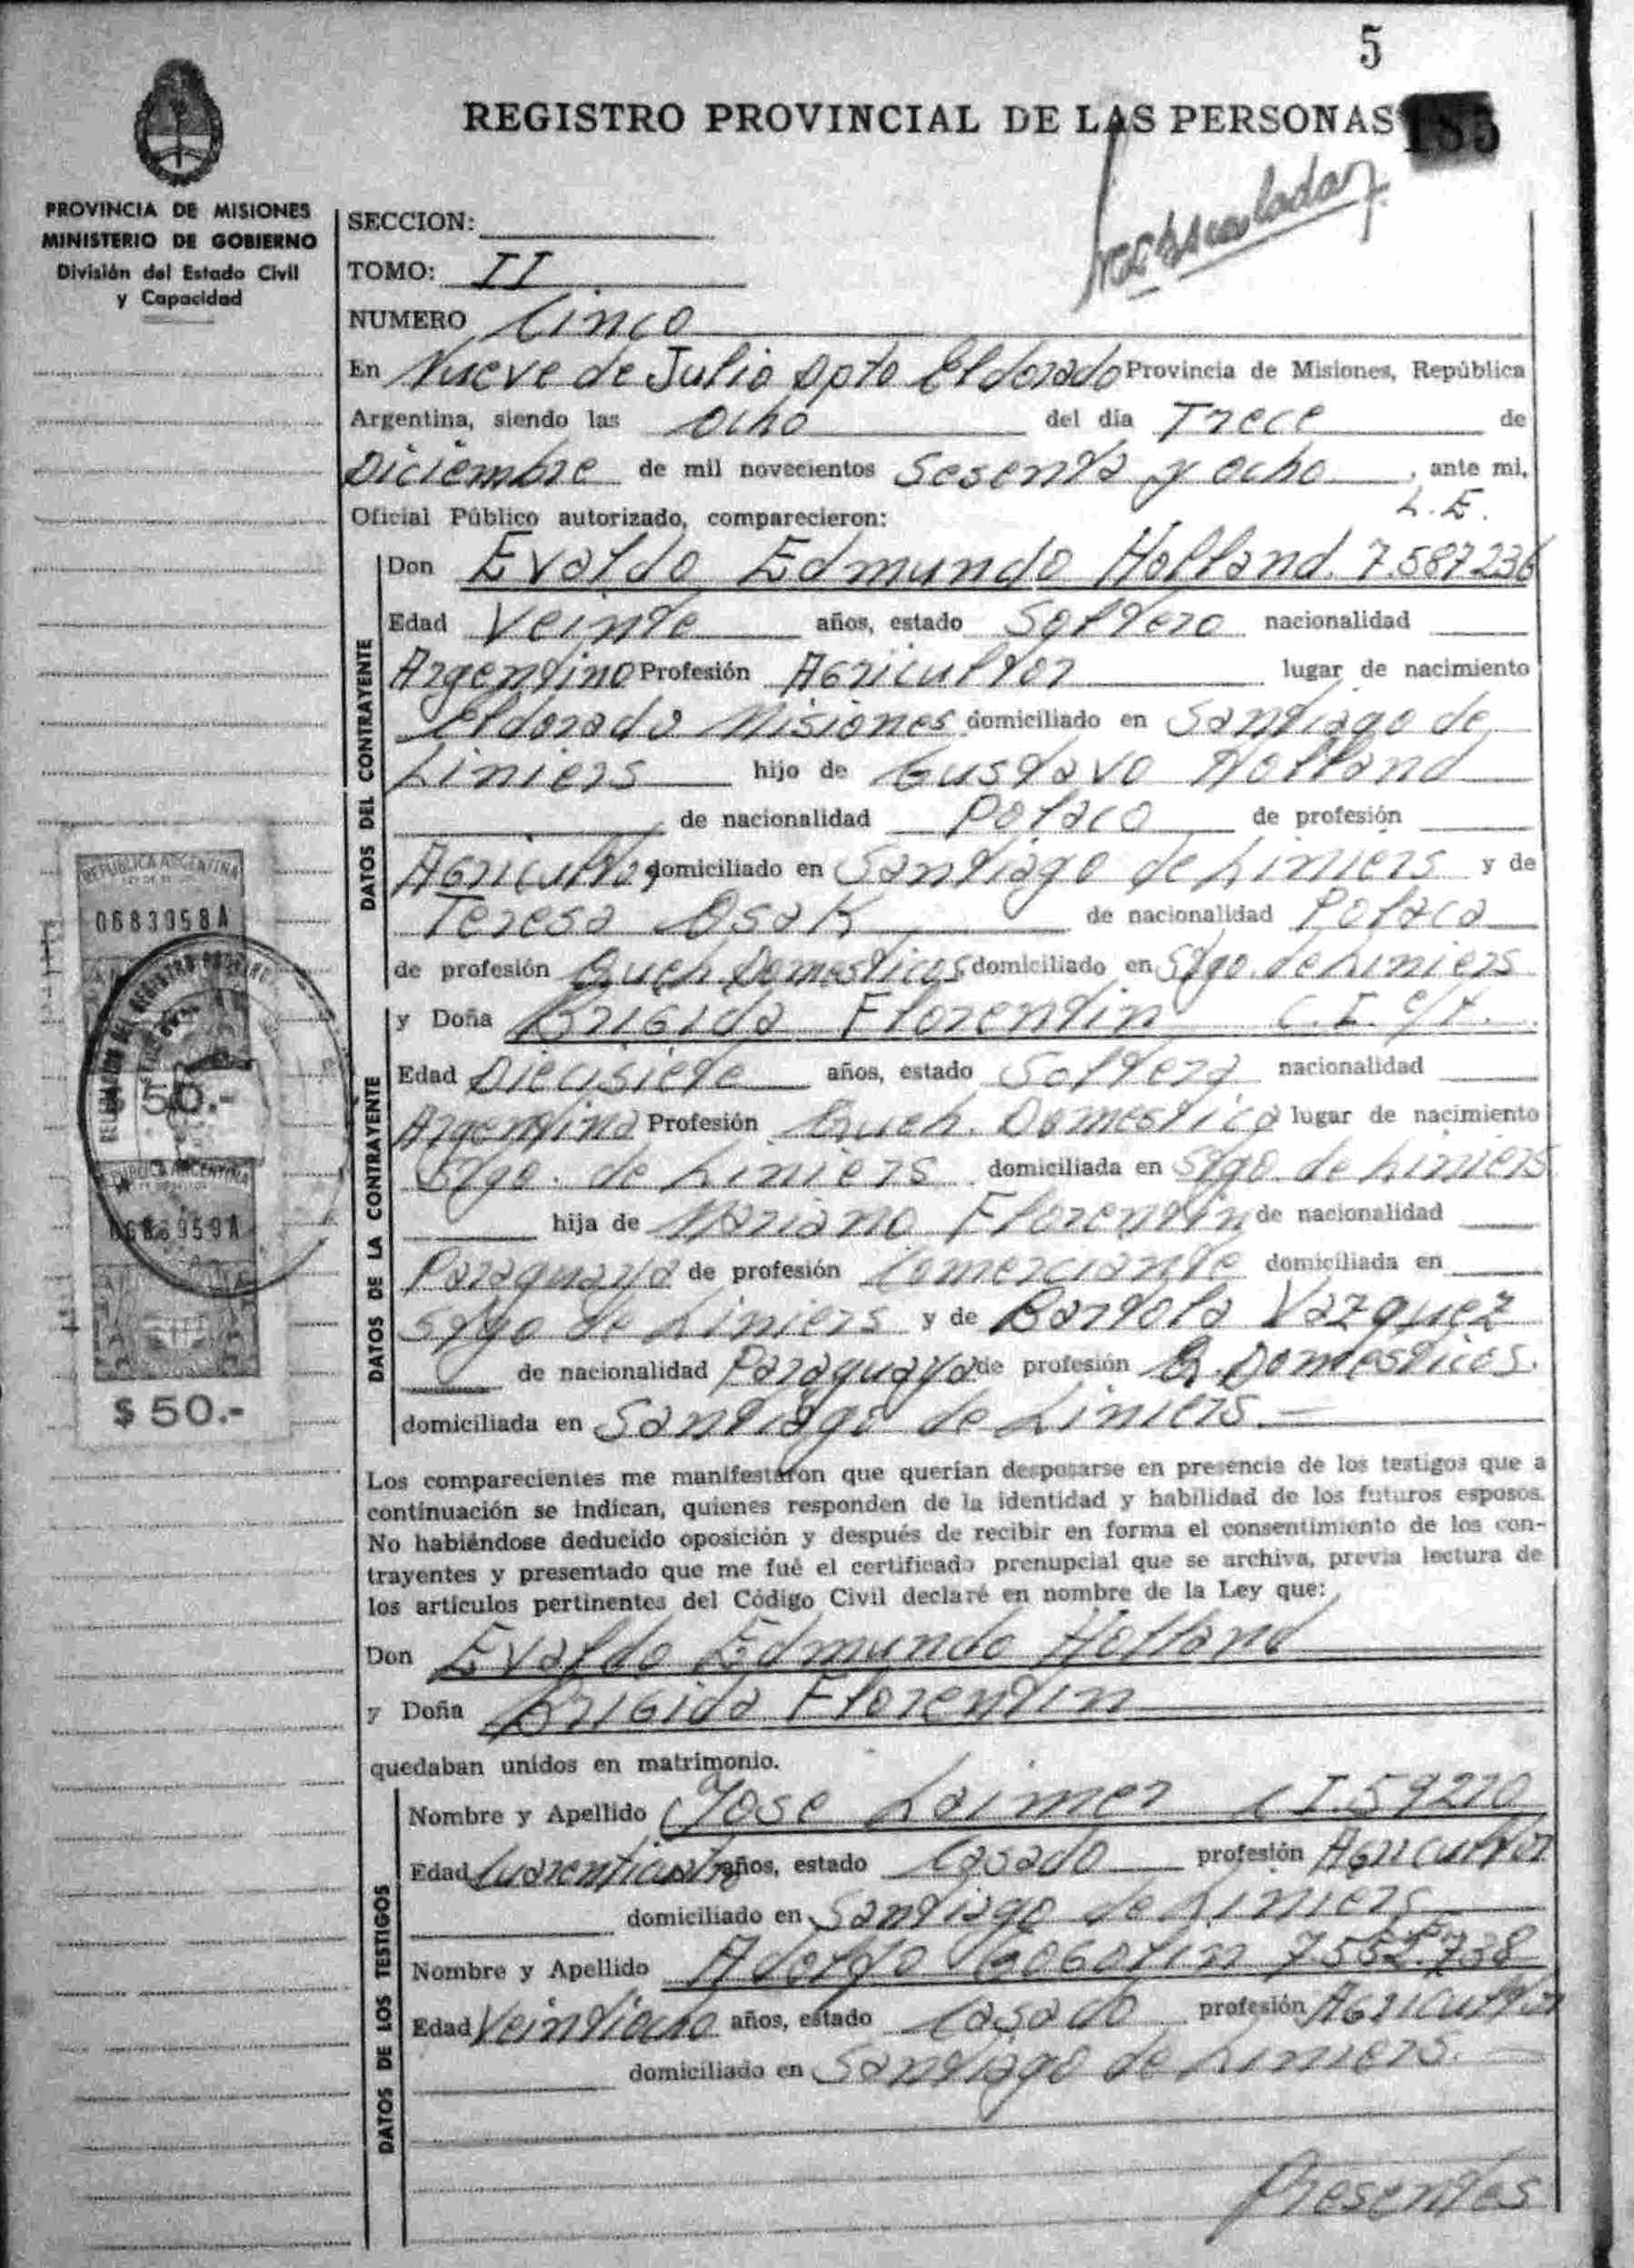 5
REGISTRO PROVINCIAL DE LAS PERSONAS
185
PROVINCIA DE MISIONES
MINISTERIO DE GOBIERNO
División del Estado Civil
y Capacidad
SECCION:
TOMO: II
NUMERO Cinco
En Nueve de Julio Dpto Eldorado Provincia de Misiones, República
Argentina, siendo las Ocho del dia Trece de
Diciembre de mil novecientos Sesenta y ocho, ante mi,
Oficial Público autorizado, comparecieron: L.E.
DATOS DEL CONTRAYENTE
Don Evaldo Edmundo Holland. 7.587236
Edad Veinte años, estado Soltero nacionalidad
Argentino Profesión Agricultor lugar de nacimiento
Eldorado Misiones domiciliado en Santiago de
Liniers hijo de Gustavo Holland
de nacionalidad Polaco de profesión
Agricultor domiciliado en Santiago de Liniers y de
Teresa Osak de nacionalidad Polaca
de profesión Queh. Domesticos domiciliado en Stgo. de Liniers
DATOS DE LA CONTRAYENTE
y Doña Brigida Florentin C.I. e/t.
Edad Diecisiete años, estado Soltera nacionalidad
Argentina Profesión Queh. Domestica lugar de nacimiento
Stgo. de Liniers domiciliada en Stgo de Liniers
hija de Mariano Florentin de nacionalidad
Paraguaya de profesión Comerciante domiciliada en
Stgo de Liniers y de Bartola Vazquez
de nacionalidad Paraguaya de profesión Q. Domesticos.
domiciliada en Santiago de Liniers.-
Los comparecientes me manifestaron que querían desposarse en presencia de los testigos que a
continuación se indican, quienes responden de la identidad y habilidad de los futuros esposos.
No habiéndose deducido oposición y después de recibir en forma el consentimiento de los con-
trayentes y presentado que me fué el certificado prenupcial que se archiva, previa lectura de
los artículos pertinentes del Código Civil declaré en nombre de la Ley que:
Don Evaldo Edmundo Holland
y Doña Brigida Florentin
quedaban unidos en matrimonio.
DATOS DE LOS TESTIGOS
Nombre y Apellido Jose Laimer C I.59270
Edad años, estado Casado profesión Agricultor
domiciliado en Santiago de Liniers
Nombre y Apellido Adolfo Gogolin 7.552.738
Edad Veintiocho años, estado Casado profesión Agricultor
domiciliado en Santiago de Liniers.-
Presentes
REPUBLICA ARGENTINA
0683958A
50.-
REPUBLICA ARGENTINA
0683959A
$ 50.-